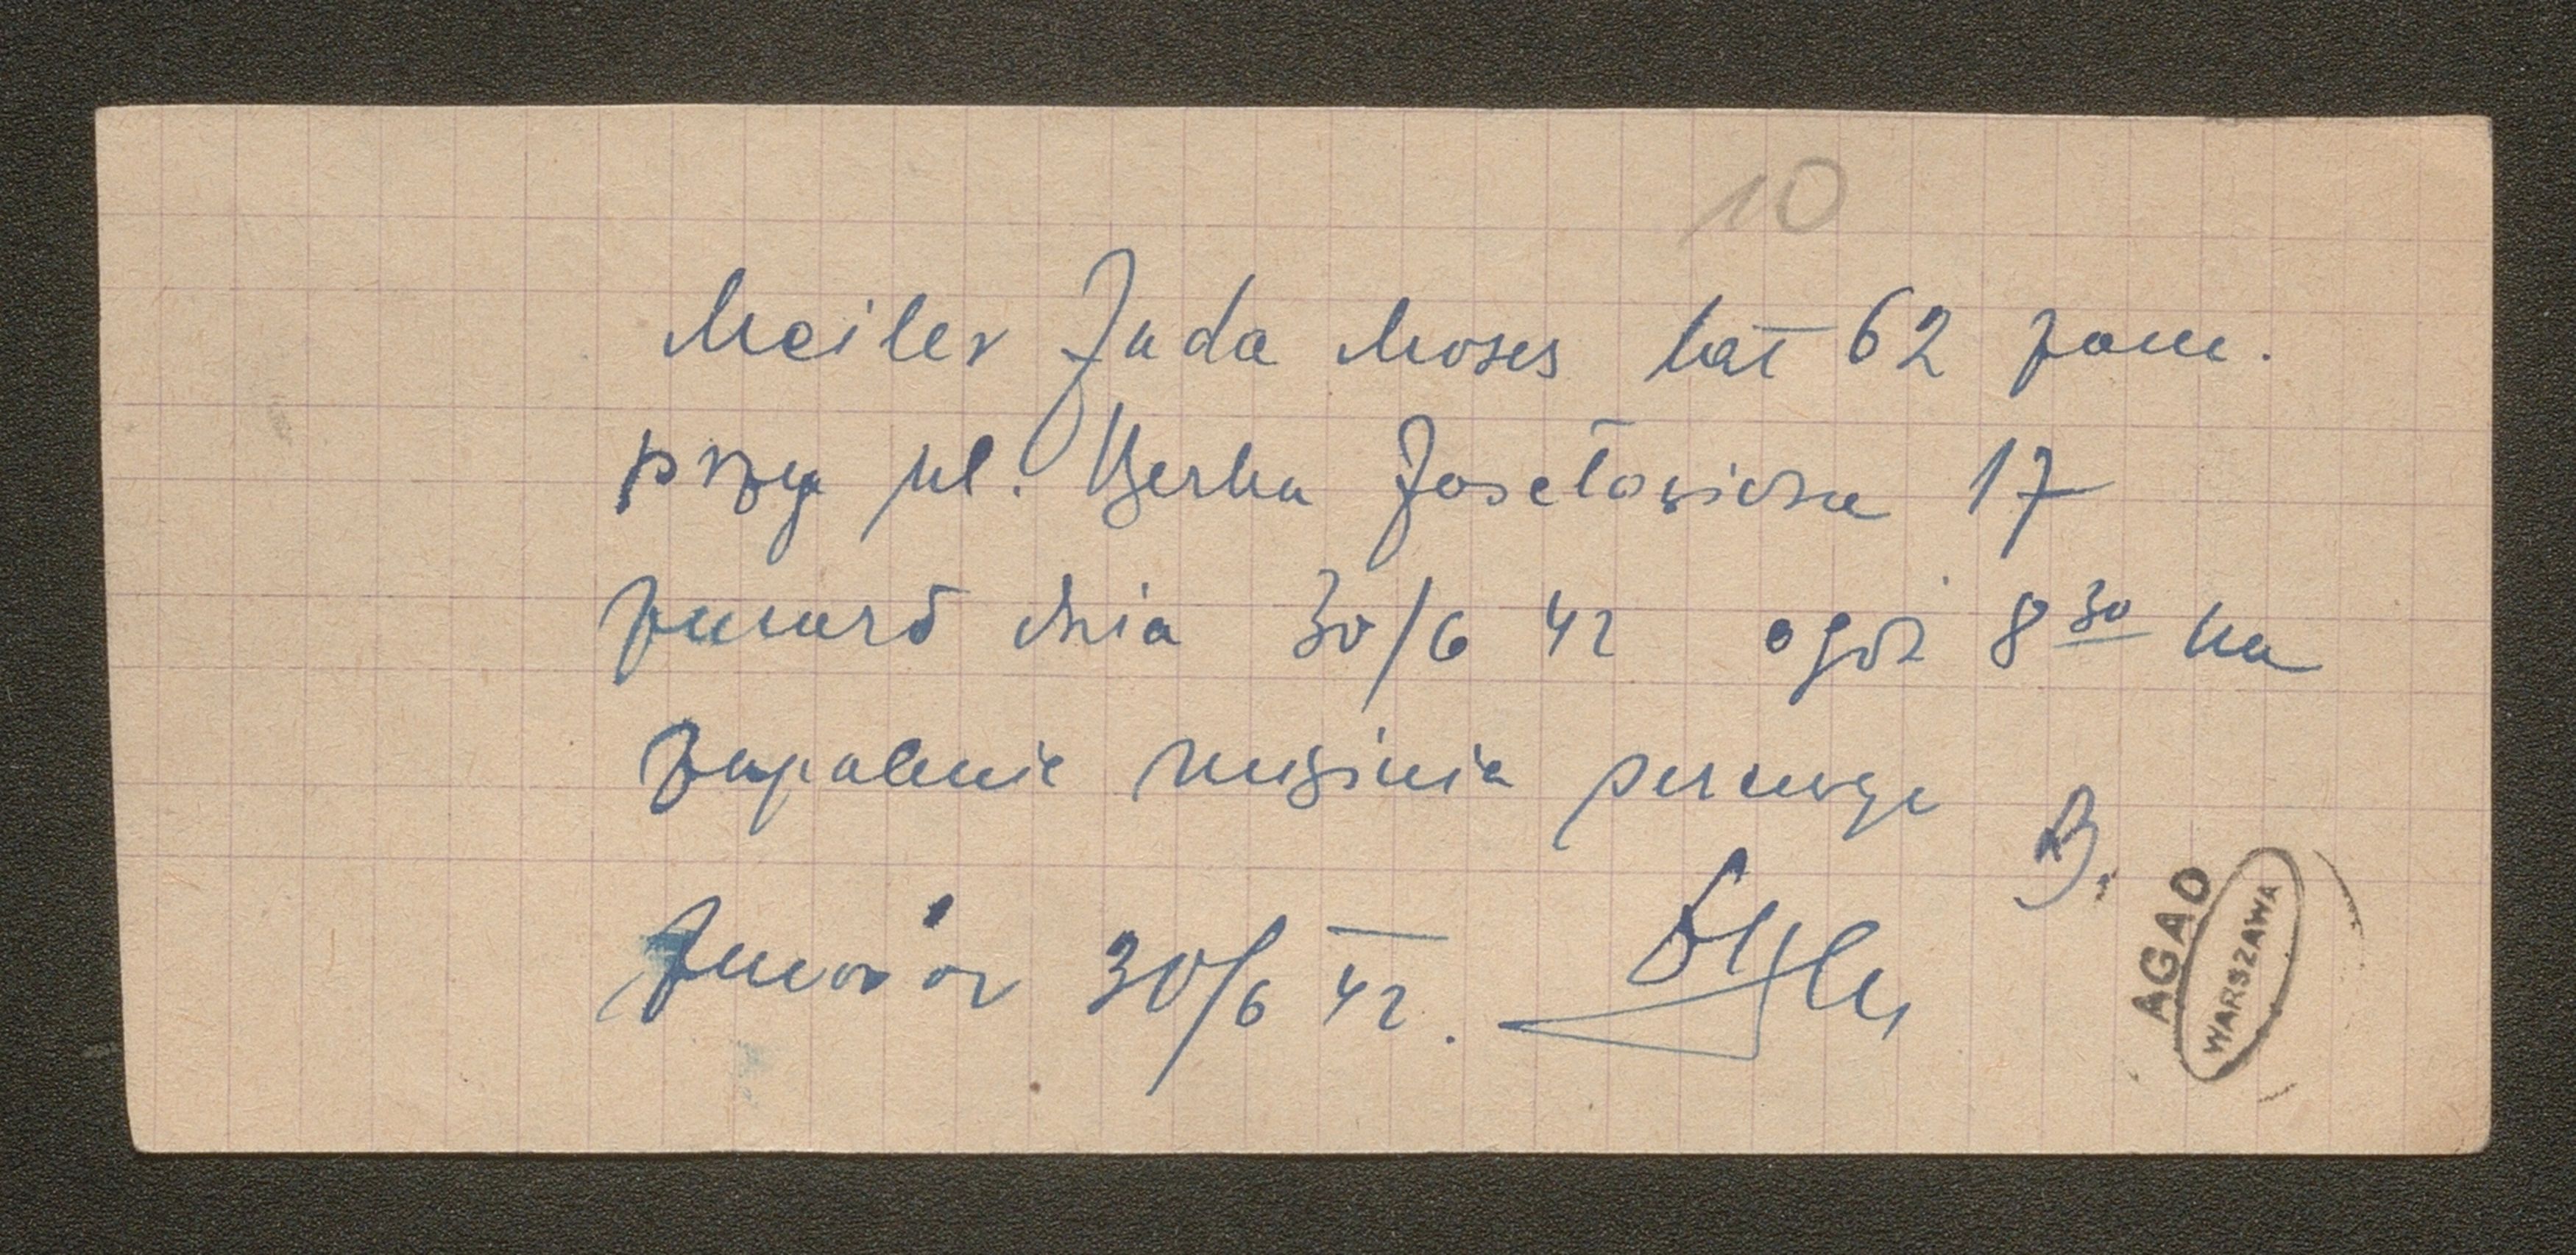 10
Meiler Juda Moses lat 62 zam.
przy ul. Berka Josełowicza 17
zmarł dnia 30/6 42 o godz 8 30 na
zapalenie mięśnia sercowego
B.
30/6 42.
AGAD
WARSZAWA